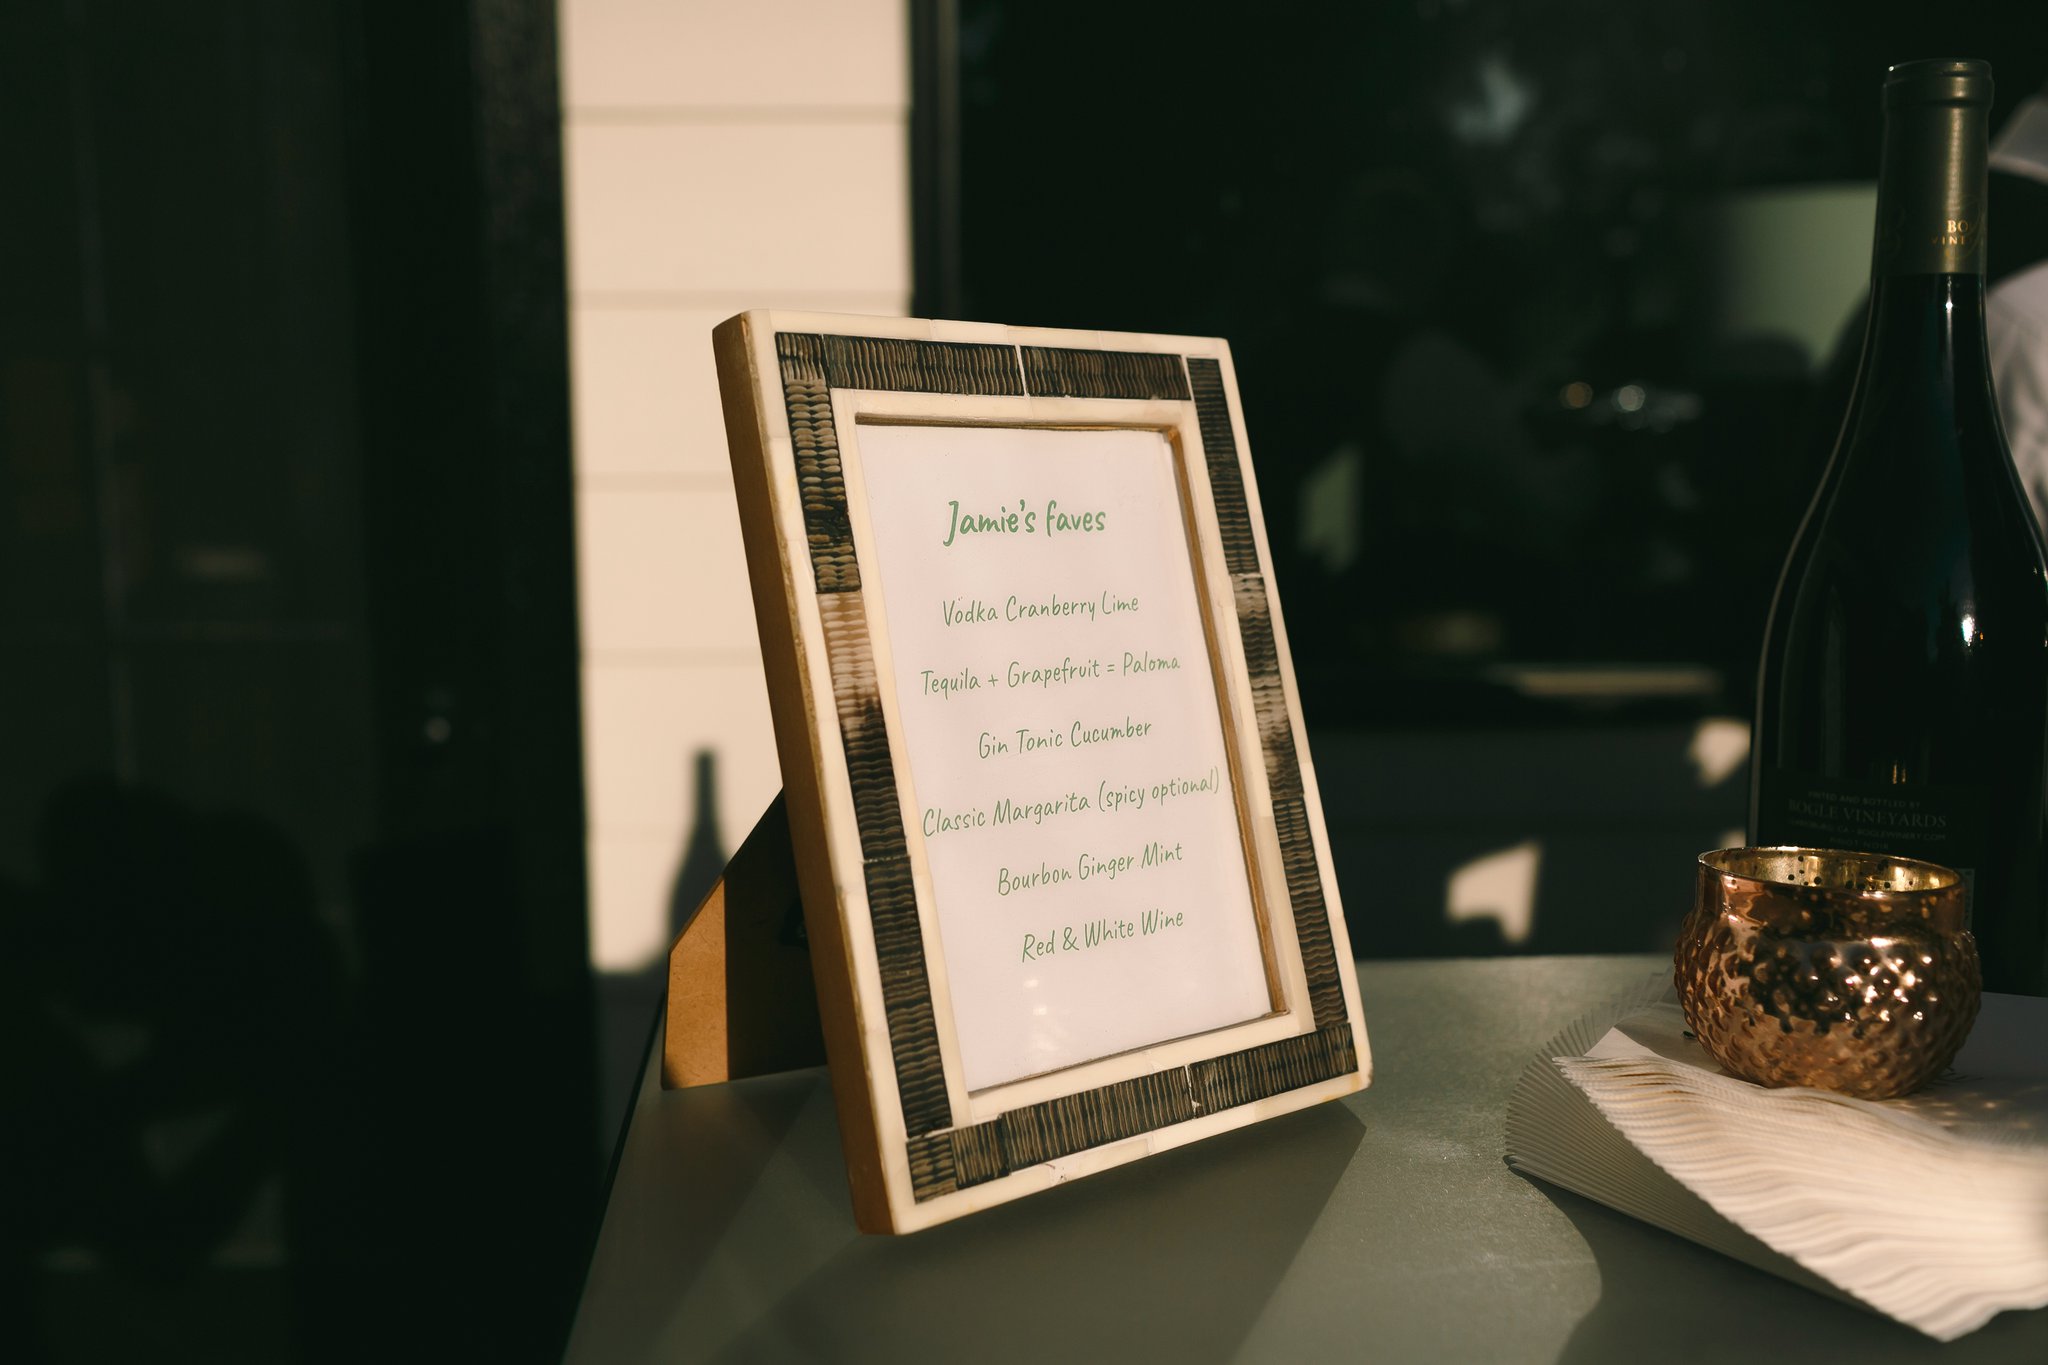 Jamie's faves
Vodka Cranberry Lime
Tequila + Grapefruit = Paloma
Gin Tonic Cucumber
Classic Margarita (spicy optional)
Bourbon Ginger Mint
Red & White Wine
BOGLE VINEYARDS
PINOT NOIR